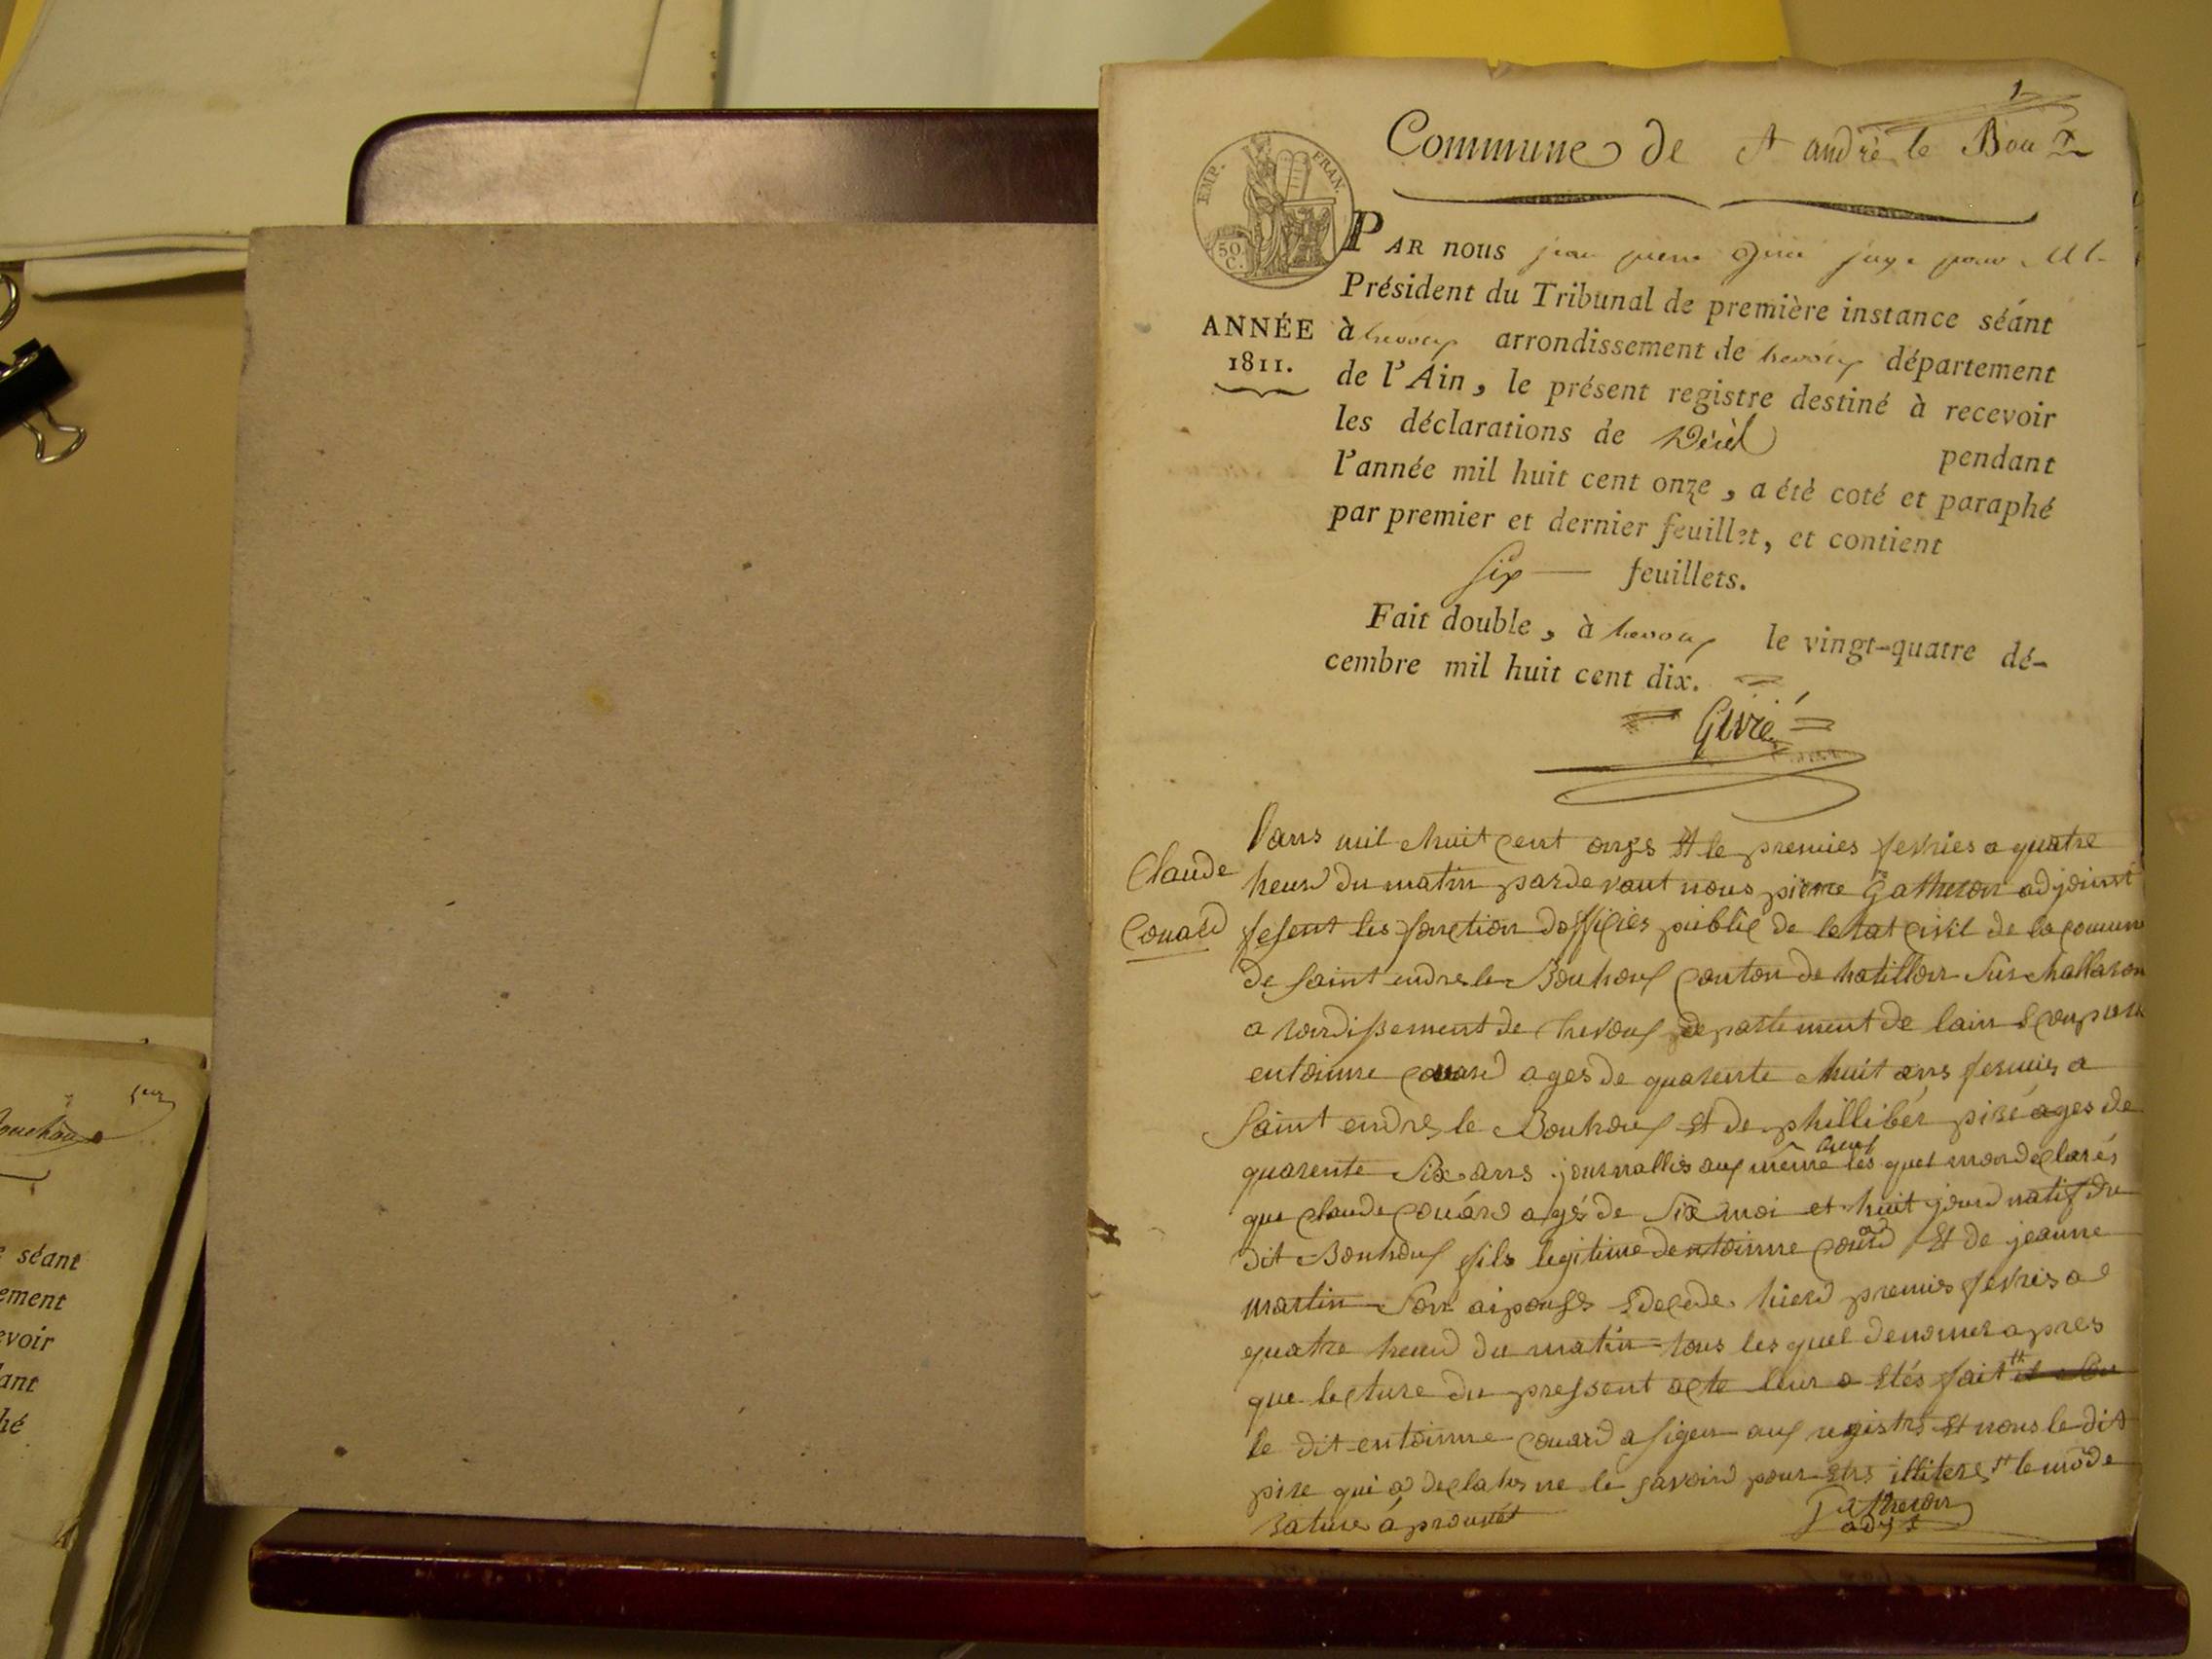 1
Commune de St andré le Boux
EMP. FRAN.
50 C.
ANNÉE
1811.
PAR nous jean pierre Givré juge pour M. le
Président du Tribunal de première instance séant
à trevoux arrondissement de trevoux département
de l'Ain, le présent registre destiné à recevoir
les déclarations de Décès pendant
l'année mil huit cent onze, a été coté et paraphé
par premier et dernier feuillet, et contient
six feuillets.
Fait double, à trevoux le vingt-quatre dé-
cembre mil huit cent dix.
Givré
Claude
Couard
lans mil huit cent onze Et le premier fevrier a quatre
heurd du matin pardevant nous pierre Gatheron adjoint
fesent les fonction dofficier publie de letat civil de la commun
de saint endre le Bouhoux canton de hatillon sur challaron
a rondissement de trevoux departement de lain
entoinne couard ages de quarente huit ans fermier a
saint endre le Bouhoux Et de phillibér pire ages de
quarente six ans journallier aux même lieux les quel mon declarés
que claude couard agé de six moi et huit jourd natif du
dit Bouhoux fils legitime dentoinne couard Et de jeanne
martin son aipouse decede hierd premier fevrier a
quatre heurd du matin tous les quel denomer apres
que lecture du pressent acte leur a Etés fait
le dit entoinne couard a signer aux registre Et nous le dit
pire qui a declares ne le savoird pour Etre illitere le mode
rature aprouvét
Gatheron
adjt
séant
ement
evoir
ant
hé